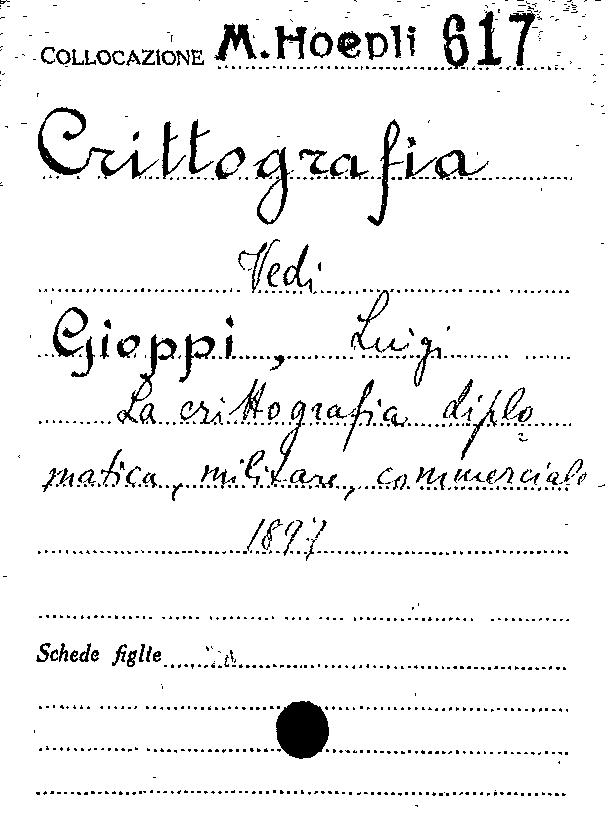 COLLOCAZIONE M. Hoepli 617
Crittografia
Vedi
Gioppi, Luigi
La crittografia diplo
matica, militare, commerciale
1897
Schede figlie